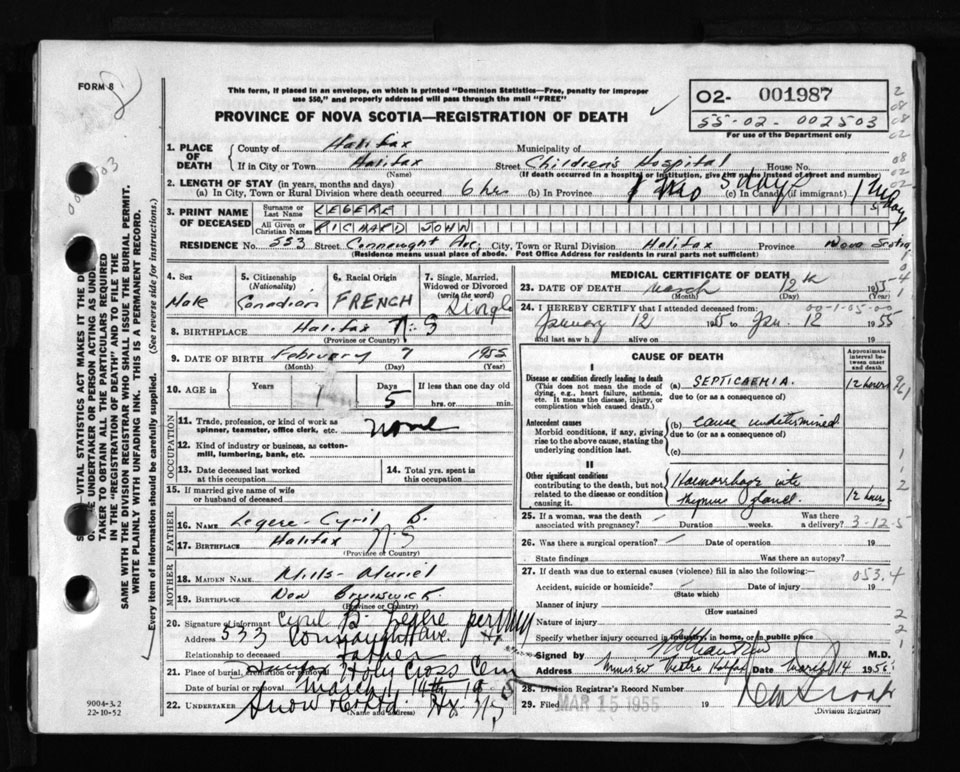 FORM 8
This form, if placed in an envelope, on which is printed "Dominion Statistics—Free, penalty for improper
use $50," and properly addressed will pass through the mail "FREE"
PROVINCE OF NOVA SCOTIA—REGISTRATION OF DEATH
02- 001987
55-02-002503
For use of the Department only
1. PLACE OF DEATH
County of Halifax Municipality of
If in City or Town Halifax Street Children's Hospital House No.
(Name) (If death occurred in a hospital or institution, give the name instead of street and number)
2. LENGTH OF STAY (in years, months and days)
(a) In City, Town or Rural Division where death occurred 6 hrs (b) In Province 1 mo 5 days (c) In Canada (if immigrant)
3. PRINT NAME OF DECEASED
Surname or Last Name LEGERE
All Given or Christian Names RICHARD JOHN
RESIDENCE No. 553 Street Connaught Ave; City, Town or Rural Division Halifax Province Nova Scotia
(Residence means usual place of abode. Post Office Address for residents in rural parts not sufficient)
4. Sex Male
5. Citizenship (Nationality) Canadian
6. Racial Origin FRENCH
7. Single, Married, Widowed or Divorced (write the word) Single
8. BIRTHPLACE Halifax N.S
(Province or Country)
9. DATE OF BIRTH February 7 1955
(Month) (Day) (Year)
10. AGE in Years 1 Days 5 If less than one day old
hrs. or min.
OCCUPATION
11. Trade, profession, or kind of work as spinner, teamster, office clerk, etc. none
12. Kind of industry or business, as cotton-mill, lumbering, bank, etc.
13. Date deceased last worked at this occupation
14. Total yrs. spent in this occupation
15. If married give name of wife or husband of deceased
FATHER
16. NAME Legere-Cyril B.
17. BIRTHPLACE Halifax N.S
(Province or Country)
MOTHER
18. MAIDEN NAME Mills-Muriel
19. BIRTHPLACE New Brunswick
(Province or Country)
20. Signature of informant Cyril B. Legere per
Address 533 Connaught Ave. Hx
Relationship to deceased Father
21. Place of burial, cremation or removal Halifax Holy Cross Cem
Date of burial or removal March 14th 1955
22. UNDERTAKER Snow & Co Ltd. Hx. N.S
(Name and address)
MEDICAL CERTIFICATE OF DEATH
23. DATE OF DEATH March 12th 1955
(Month) (Day) (Year)
24. I HEREBY CERTIFY that I attended deceased from: 00-1-05-00
January 12 1955 to Jan. 12 1955
and last saw h alive on 19
CAUSE OF DEATH
Approximate interval between onset and death
I
Disease or condition directly leading to death
(This does not mean the mode of dying, e.g., heart failure, asthenia, etc. It means the disease, injury, or complication which caused death.)
(a) SEPTICAEMIA. 12 hours
due to (or as a consequence of)
Antecedent causes
Morbid conditions, if any, giving rise to the above cause, stating the underlying condition last.
(b) cause undetermined
due to (or as a consequence of)
(c)
II
Other significant conditions
contributing to the death, but not related to the disease or condition causing it.
Haemorrhage into thymus gland. 12 hours
25. If a woman, was the death associated with pregnancy? Duration weeks. Was there a delivery? 3-12-5
26. Was there a surgical operation? Date of operation 19
State findings Was there an autopsy?
27. If death was due to external causes (violence) fill in also the following: 053.4
Accident, suicide or homicide? Date of injury 19
(State which)
Manner of injury
(How sustained
Nature of injury
Specify whether injury occurred in industry, in home, or in public place
Signed by M.D.
Address Halifax Date March 14 1955
28. Division Registrar's Record Number
29. Filed MAR 15 1955 19
(Division Registrar)
VITAL STATISTICS ACT MAKES IT THE
UNDERTAKER OR PERSON ACTING AS
TAKER TO OBTAIN ALL THE PARTICULARS REQUIRED
IN THE "REGISTRATION OF DEATH" AND TO FILE THE
SAME WITH THE DIVISION REGISTRAR WHO SHALL ISSUE THE BURIAL PERMIT.
WRITE PLAINLY WITH UNFADING INK. THIS IS A PERMANENT RECORD.
Every item of information should be carefully supplied. (See reverse side for instructions.)
9004-3.2
22-10-52